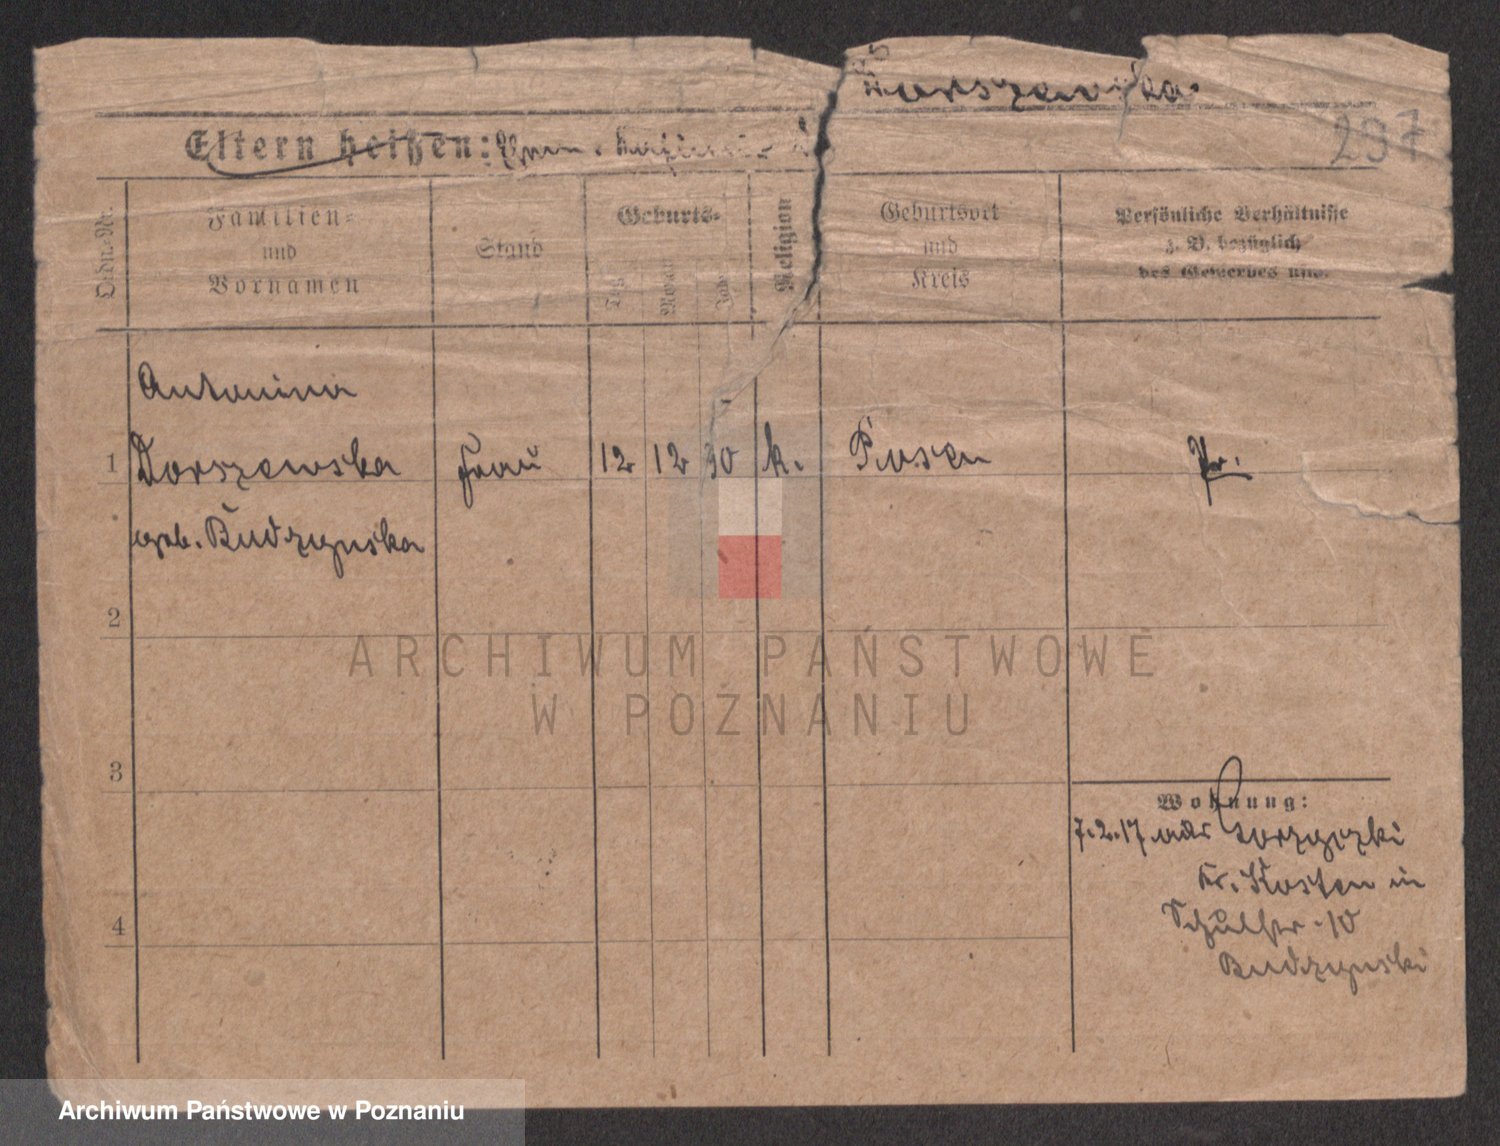 Dorszewska
237
Eltern heißen:
Ordn.-Nr.
Familien-
und
Vornamen
Stand
Geburts-
Tag
Monat
Jahr
Religion
Geburtsort
und
Kreis
Persönliche Verhältnisse
z. B. bezüglich
des Gewerbes usw.
Antonina
1 Dorszewska Frau 12 12 30 k. Posen Pr.
geb. Budzynska
2
3
4
Wohnung:
7.2.17 aus Gorzyczki
Kr. Kosten in
Schulstr. 10
Budzynski
ARCHIWUM PAŃSTWOWE
W POZNANIU
Archiwum Państwowe w Poznaniu